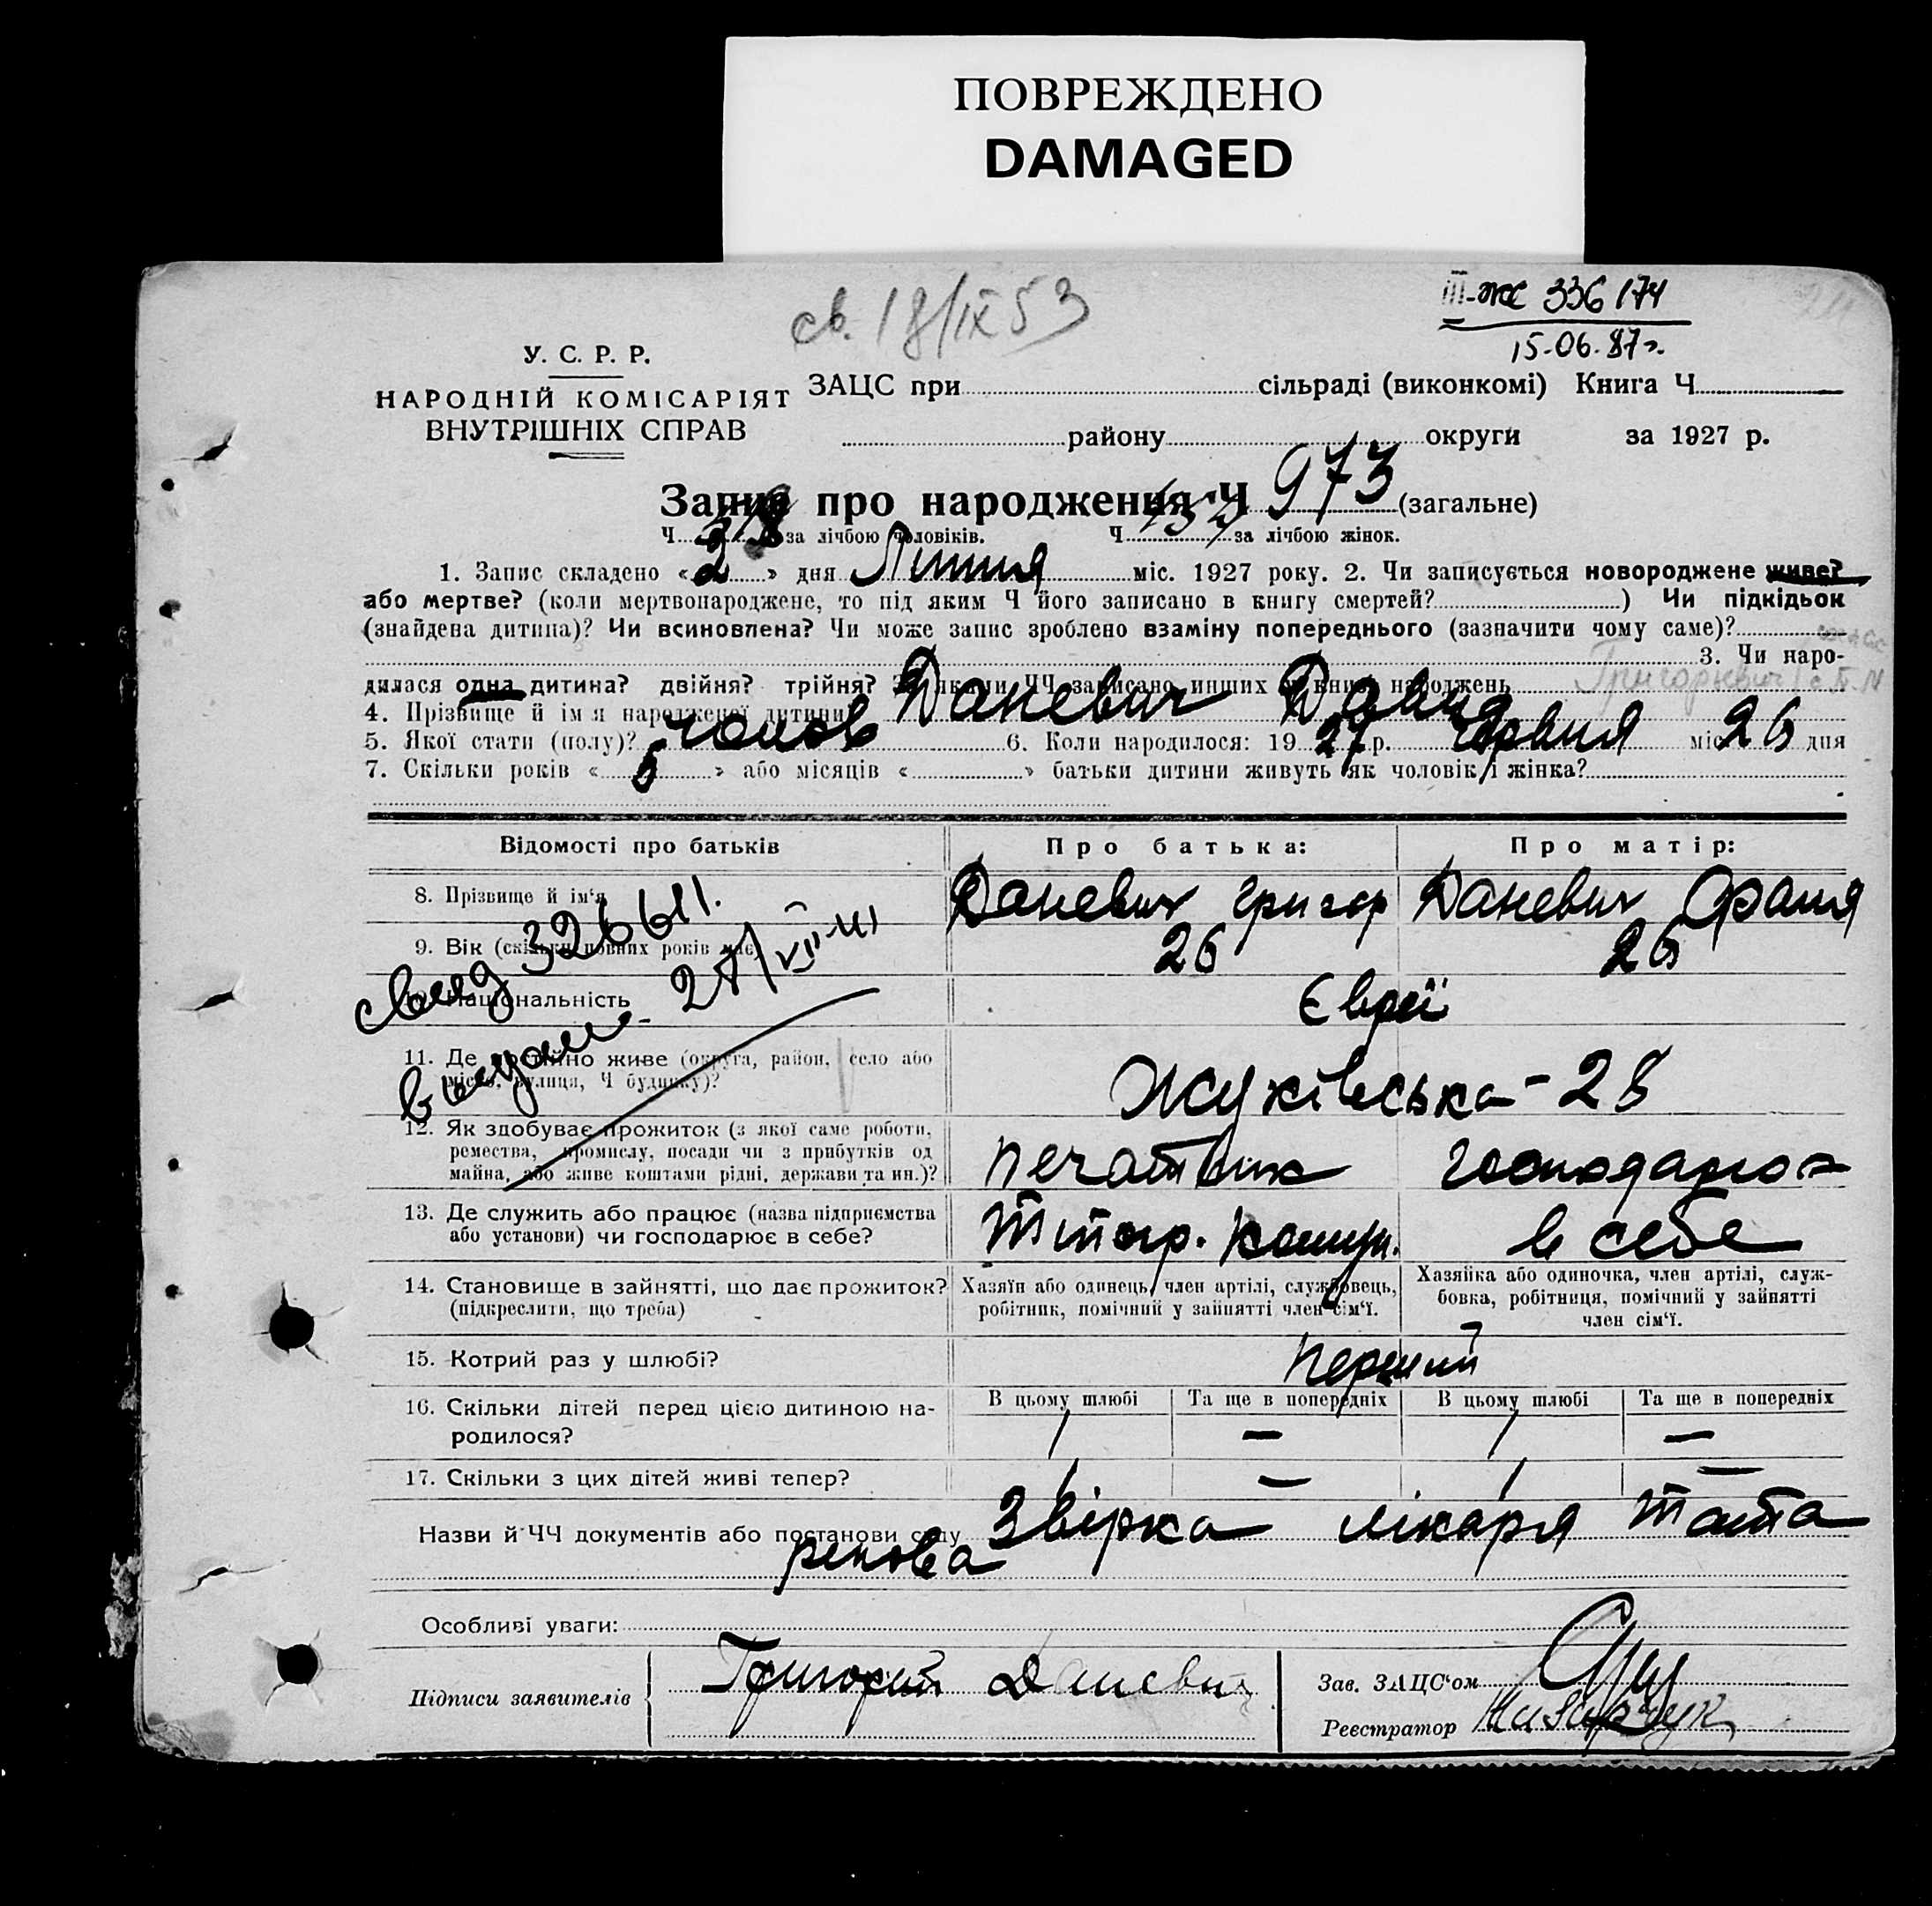 ПОВРЕЖДЕНО
DAMAGED
св. 18/IX 53
III-ЖС 336174
15-06-87г.
У. С. Р. Р.
НАРОДНІЙ КОМІСАРІЯТ
ВНУТРІШНІХ СПРАВ
ЗАЦС при сільраді (виконкомі) Книга Ч
району округи за 1927 р.
Запис про народження Ч 973 (загальне)
Ч за лічбою чоловіків. Ч за лічбою жінок.
1. Запис складено «2» дня Липня міс. 1927 року. 2. Чи записується новороджене живе?
або мертве? (коли мертвонароджене, то під яким Ч його записано в книгу смертей? ) Чи підкідьок
(знайдена дитина)? Чи всиновлена? Чи може запис зроблено взаміну попереднього (зазначити чому саме)?
3. Чи наро-
дилася одна дитина? двійня? трійня? За якими ЧЧ записано инших в книгу народжень Григорьевич
4. Прізвище й ім'я народженої дитини Даневич Давид
5. Якої стати (полу)? чолов 6. Коли народилося: 1927 р. Червня міс. 26 дня
7. Скільки років «6» або місяців « » батьки дитини живуть як чоловік і жінка?
Відомості про батьків Про батька: Про матір:
8. Прізвище й ім'я Даневич Григор Даневич Фаня
9. Вік (скільки повних років має) 26 26
свид 326611.
10. Національність Євреї
выдано 27/VII-41
11. Де постійно живе (округа, район, село або
місто, вулиця, Ч будинку)? Жуківська-28
12. Як здобуває прожиток (з якої саме роботи,
ремества, промислу, посади чи з прибутків од
майна, або живе коштами рідні, держави та ин.)? печатник господарює
13. Де служить або працює (назва підприємства
або установи) чи господарює в себе? Типогр. в себе
14. Становище в зайнятті, що дає прожиток?
(підкреслити, що треба)
Хазяїн або одинець, член артілі, службовець,
робітник, помічний у зайнятті член сім'ї.
Хазяйка або одиночка, член артілі, служ-
бовка, робітниця, помічний у зайнятті
член сім'ї.
15. Котрий раз у шлюбі? перший
16. Скільки дітей перед цією дитиною на-
родилося?
В цьому шлюбі Та ще в попередніх В цьому шлюбі Та ще в попередніх
1 — 1 —
17. Скільки з цих дітей живі тепер? 1 — 1 —
Назви й ЧЧ документів або постанови суду Звірка лікаря Тата
ренова
Особливі уваги:
Підписи заявителів Григорий Даневич
Зав. ЗАЦС'ом
Реєстратор